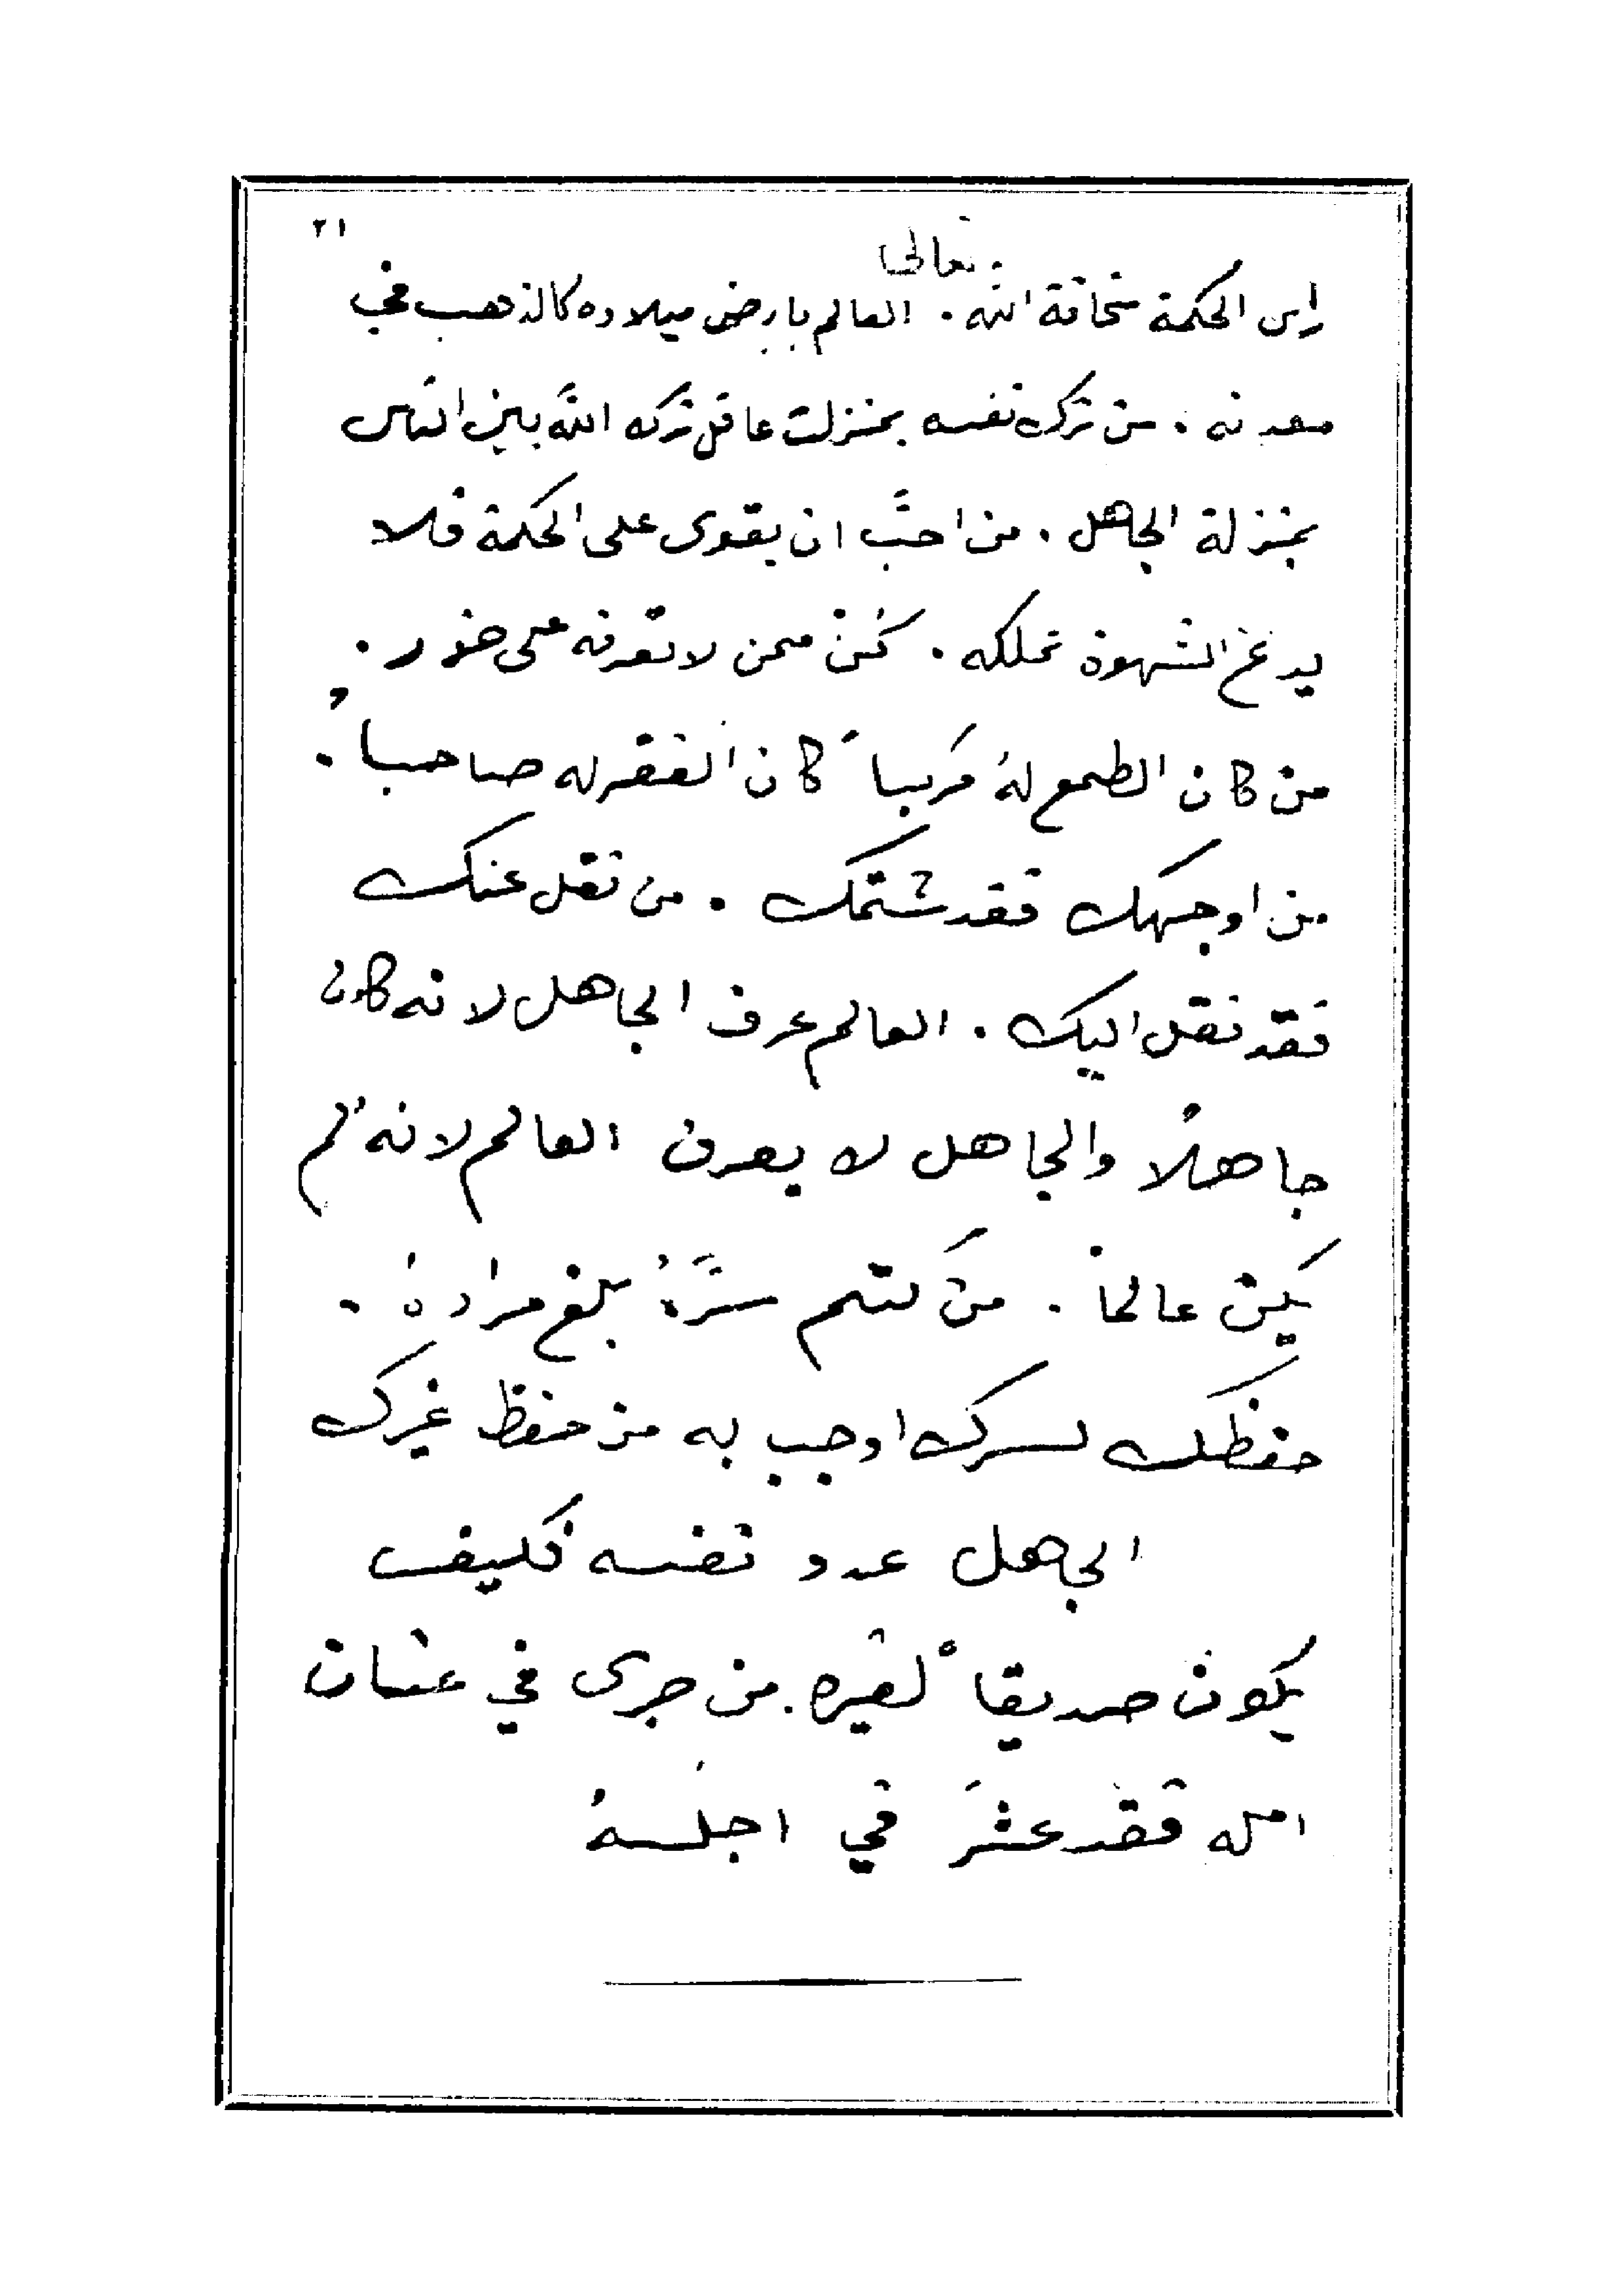 ٢١
تعالى
راس الحكمة مخافة الله . العالم بارض ميلاده كالذهب في
معدنه . من ترك نفسه بمنزلت عاقل تركه الله بين الناس
بمنزلة الجاهل . من احبَّ ان يقوى على الحكمة فلا
يدع الشهوة تملكه . كُن ممن لا تعرفه على حذر .
من كان الطمع لهُ مركباً كان الفقر له صاحباً .
من اوجهك فقد شتمك . من نقل عنك
فقد نقل اليك . العالم عرف الجاهل لانه كان
جاهلاً والجاهل لا يعرف العالم لانهُ لم
يكن عالماً . من كتم سرَّهُ بلغ مرادهُ .
حفظك لسرك اوجب به من حفظ غيرك
الجهل عدو نفسه فكيف
يكون صديقاً لغيره . من جرى في عنان
امله فقد عثرَ في اجلهُ